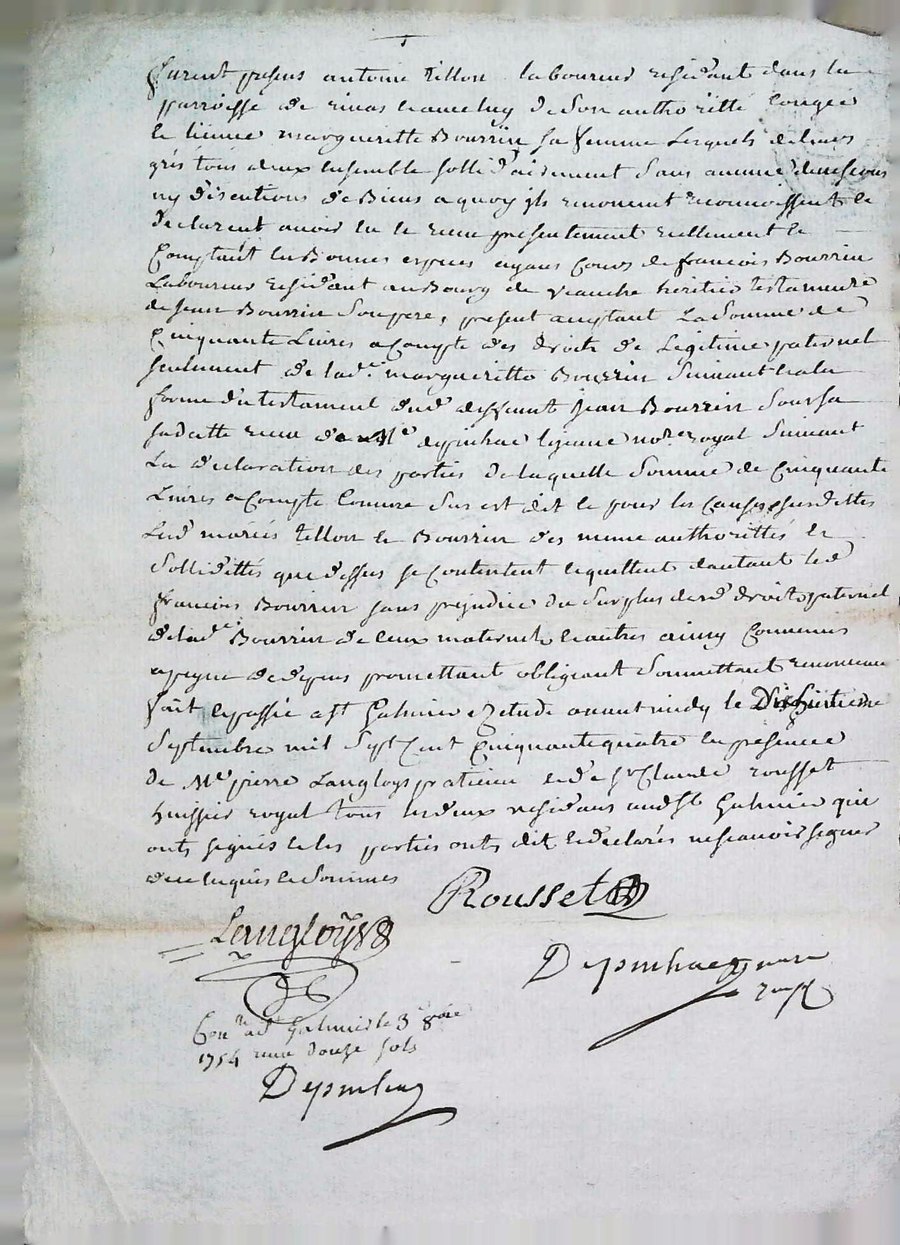 furent presens antoine tillon laboureur residant dans la
parroisse de rivas lequel de son authoritté congée
et licence margueritte Bourrin sa femme Lesquels de leurs
grés tous deux ensemble sollidairement sans aucune division
ny discutions de Biens a quoy ils renoncent reconnoissent et
declarent avoir eu et receu presentement reellement et
Comptant en Bonnes especes ayans cours de francois Bourrin
Laboureur residant au Bourg de veauche heritier testamentre
de jean Bourrin Son pere, present acceptant La Somme de
Cinquante Livres a Compte des droits de Legitime paternel
seulement de lad.e margueritte Bourrin Suivant et a la
forme du testament dud deffunt jean Bourrin Sous sa
sa datte receu de Me depinhac no.re royal Suivant
La declaration des parties de laquelle Somme de Cinquante
Livres a Compte Comme Sus est dit et pour les causes susdittes
Lesd mariés tillon et Bourrin des meme authorittés et
Sollidittés que dessus se contentent et quittent dautant led
francois Bourrin sans prejudice du Surplus desd droits paternel
de lad.e Bourrin de ceux maternels et autres ainsy Convenus
a peyne de depens promettant obligeant Soumettant renonceant
fait et passé a St Galmier Etude avant midy le Dixhuitieme
Septembre mil Sept Cent Cinquante quatre en presence
de Me pierre Langloys praticien et de Sr Claude rousset
huissier royal tous les deux residans aud St Galmier qui
onts signés et les parties onts dit et declarés ne scavoir signer
de ce enquis et Sommés
Rousset
Langloys
Depinhac no.re
royal
Con.lé a St Galmier le 3e
1754 receu douze sols
Depinhac